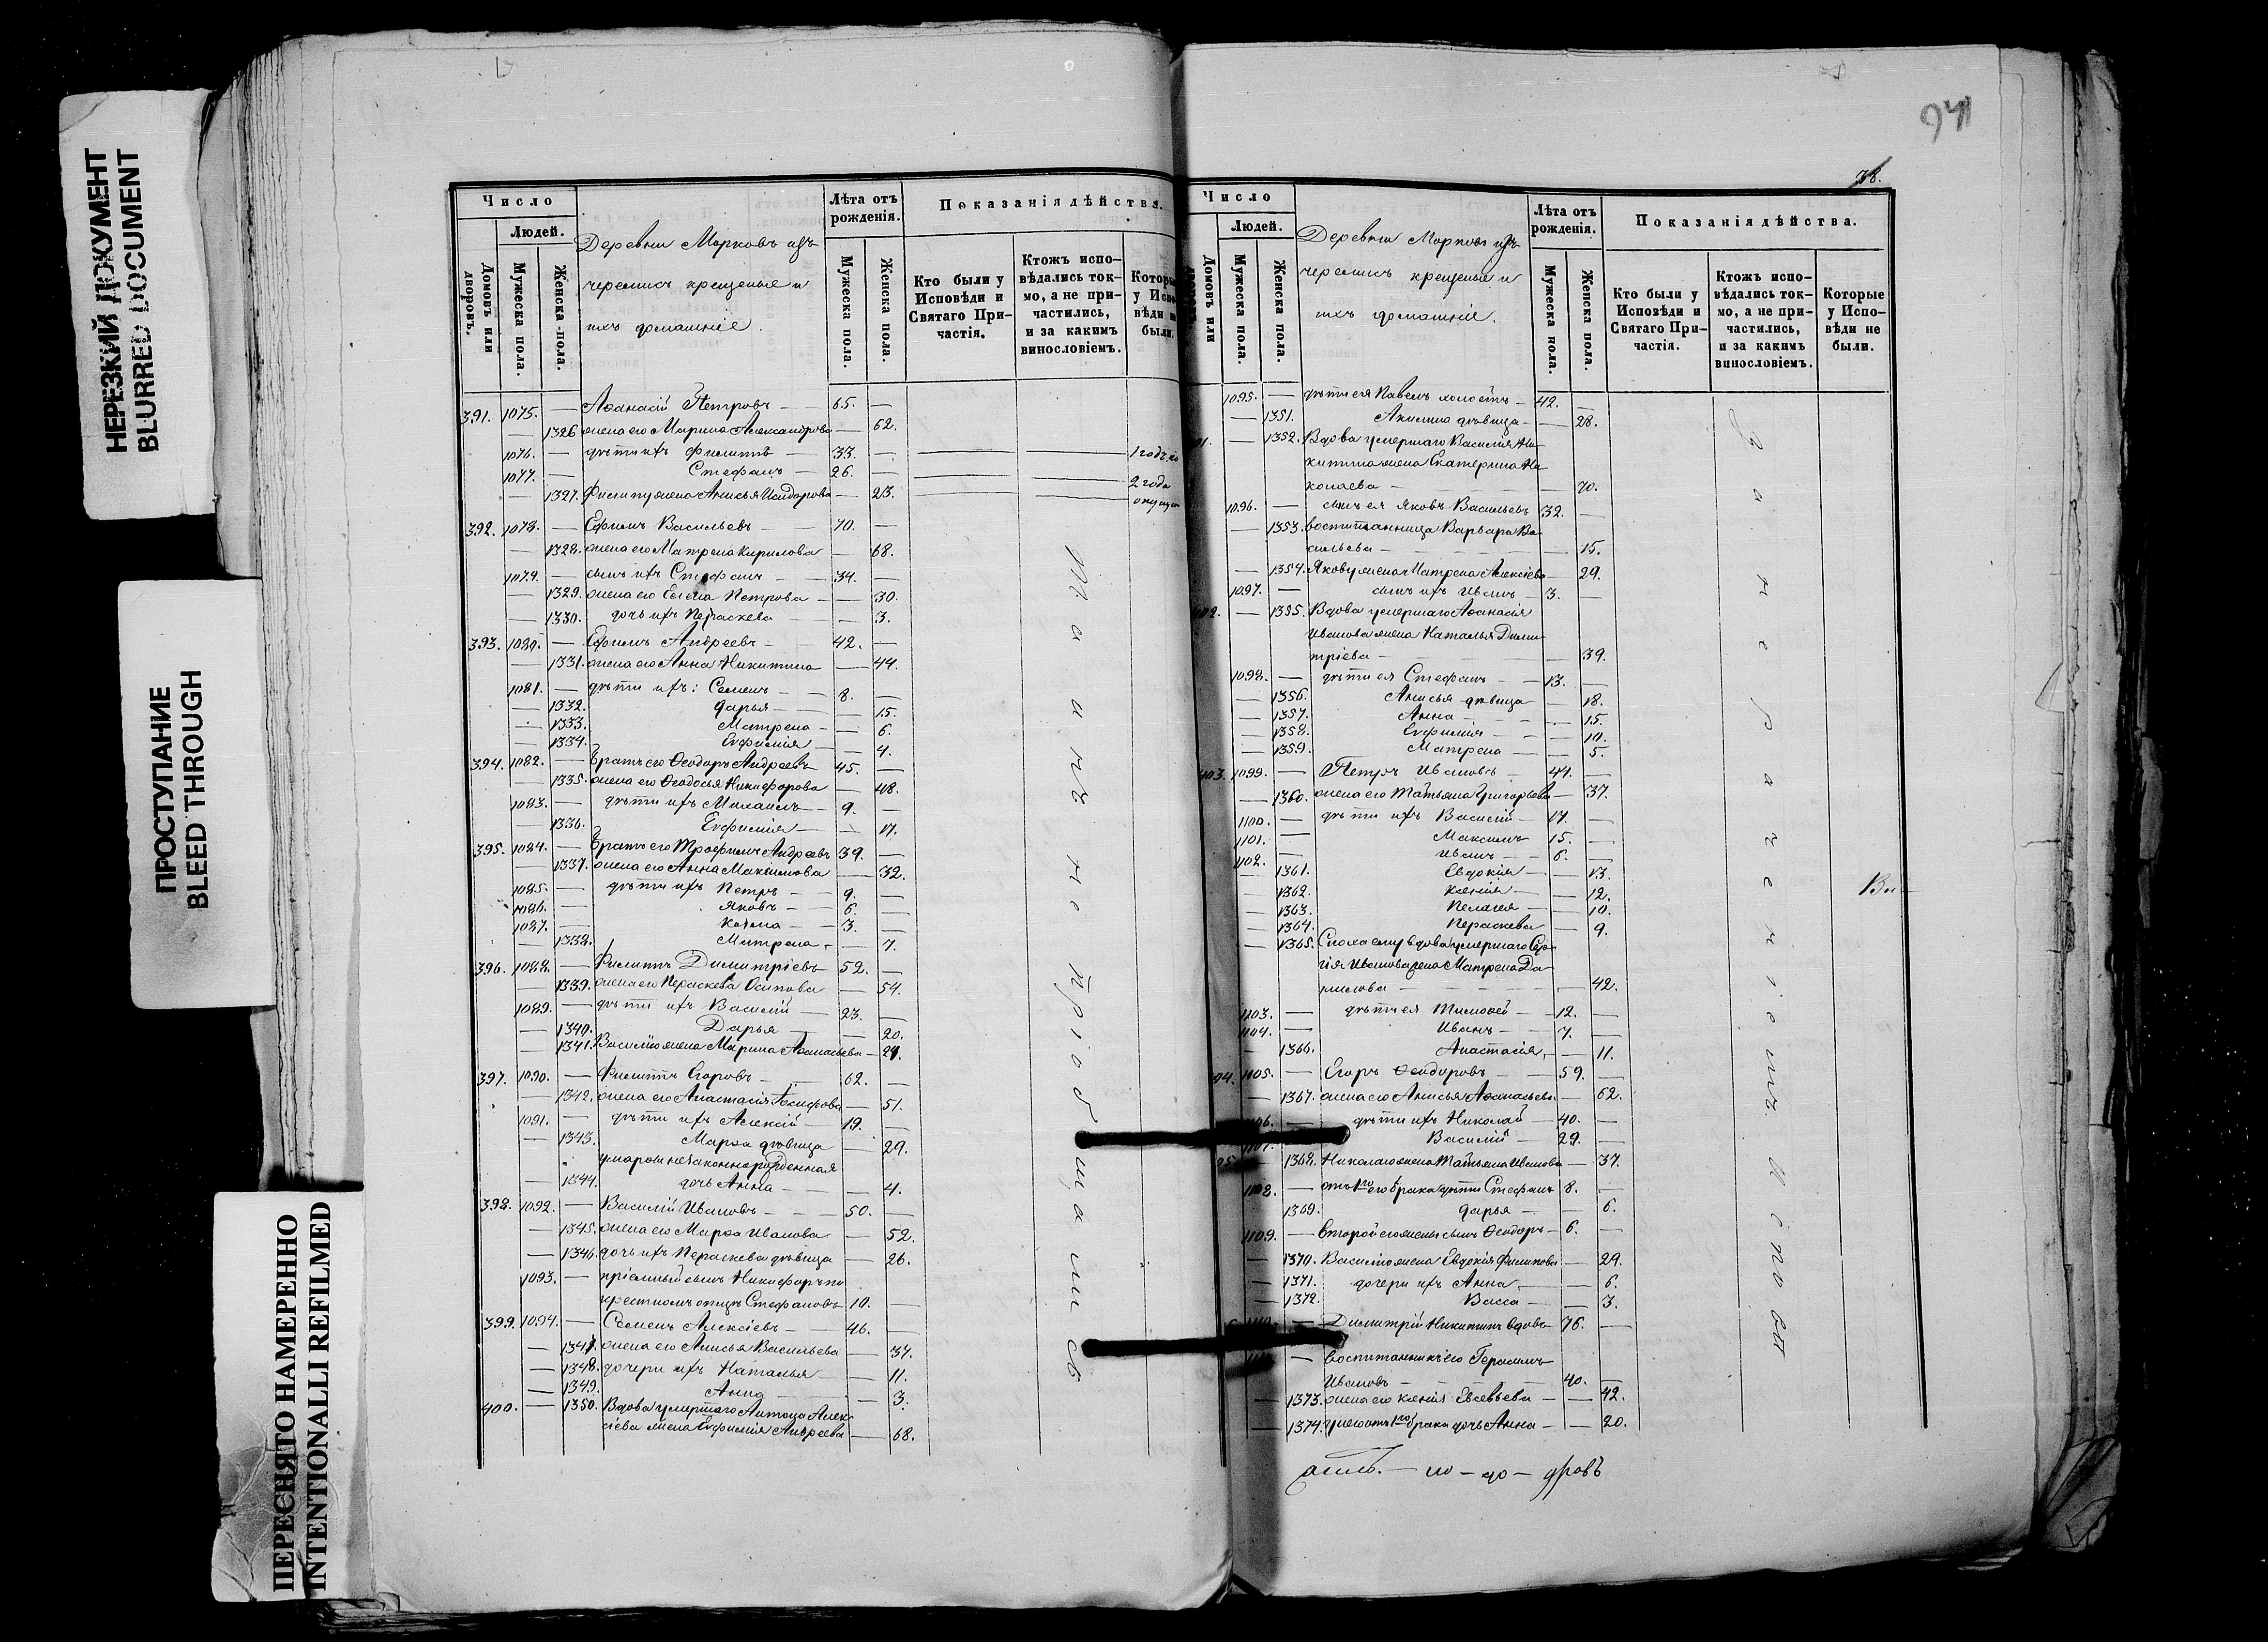 НЕРЕЗКИЙ ДОКУМЕНТ
BLURRED DOCUMENT
ПРОСТУПАНИЕ
BLEED THROUGH
ПЕРЕСНЯТО НАМЕРЕННО
INTENTIONALLI REFILMED
Число
Людей.
Домовъ или дворовъ.
Мужеска пола.
Женска пола.
Деревни Марковъ изъ
черемисъ крещеные и
ихъ домашніе.
Лѣта отъ рожденія.
Мужеска пола.
Женска пола.
Показанія дѣйства.
Кто были у Исповѣди и Святаго Причастія.
Ктожъ исповѣдались токмо, а не причастились, и за какимъ винословіемъ.
Которые у Испо-
вѣди не
были.
391. 1075. — Аѳанасій Петровъ — 65. —
— 1326 жена его Марина Александрова — 62.
1076. — дѣти ихъ Филиппъ — 33. — 1 годъ
1077. — Стефанъ — 26. — 2 года
— 1327. Филипу жена Анисья Исидорова — 23.
392. 1078. — Ефимъ Васильевъ — 70. —
— 1328. жена его Матрена Кирилова — 68.
1079. — сынъ ихъ Стефанъ — 34. —
— 1329. жена его Елена Петрова — 30.
— 1330. дочь ихъ Параскева — 3.
393. 1080. — Ефимъ Андреевъ — 42. —
— 1331. жена его Анна Никитина — 44.
1081. — дѣти ихъ: Семенъ — 8. —
— 1332. Дарья — 15.
— 1333. Матрена — 6.
— 1334. Евфимія — 4.
394. 1082. — Братъ его Ѳеодоръ Андреевъ 45. —
— 1335. жена его Ѳеодосья Никифорова — 48.
1083. — дѣти ихъ Михаилъ — 9. —
— 1336. Евфимія — 17.
395. 1084. — Братъ его Трофимъ Андреевъ 39. —
— 1337. жена его Анна Максимова — 32.
1085. — дѣти ихъ Петръ — 9. —
1086. — Яковъ — 6. —
1087. — Козма — 3. —
— 1338. Матрена — 7.
396. 1088. — Филиппъ Димитріевъ 52. —
— 1339. жена его Параскева Осипова — 54.
1089. — дѣти ихъ Василій — 23. —
— 1340. Дарья — 20.
— 1341. Василію жена Марина Аѳанасьева — 21.
397. 1090. — Филиппъ Егоровъ — 62. —
— 1342. жена его Анастасія — 51.
1091. — дѣти ихъ Алексій — 19. —
— 1343. Марѳа дѣвица — 29.
у марѳы незаконнорожденная
— 1344. дочь Анна — 4.
398. 1092. — Василій Ивановъ — 50. —
— 1345. жена его Марѳа Иванова — 52.
— 1346. дочь ихъ Параскева дѣвица — 26.
1093. — пріемный сынъ Никифоръ по
крестномъ отцѣ Стефановъ 10. —
399. 1094. — Семенъ Алексіевъ — 46. —
— 1347. жена его Анисья Васильева — 37.
— 1348. дочери ихъ Наталья — 11.
— 1349. Анна — 3.
400. — 1350. Вдова умершаго Антона Алек-
сіева жена Евфимія Андреева — 68.
Таинъ не пріобщались
94
78.
Число
Людей.
Домовъ или
Мужеска пола.
Женска пола.
Деревни Марковъ изъ
черемисъ крещеные и
ихъ домашніе.
Лѣта отъ рожденія.
Мужеска пола.
Женска пола.
Показанія дѣйства.
Кто были у Исповѣди и Святаго Причастія.
Ктожъ исповѣдались токмо, а не причастились, и за какимъ винословіемъ.
Которые у Исповѣди не были.
1095. — дѣти ея Павелъ холостъ — 42. —
— 1351. Акилина дѣвица — 28.
01. — 1352. Вдова умершаго Василія Ни-
китина жена Екатерина Ни-
колаева — 70.
1096. — сынъ ея Яковъ Васильевъ 32. —
— 1353. воспитанница Варвара Ва-
сильева — 15.
— 1354. Якову жена Матрена Алексіева — 29.
1097. — сынъ ихъ Иванъ — 3. —
402. — 1355. Вдова умершаго Аѳанасія
Иванова жена Наталья Дими-
тріева — 39.
1098. — дѣти ея Стефанъ — 13. —
— 1356. Анисья дѣвица — 18.
— 1357. Анна — 15.
— 1358. Евфимія — 10.
— 1359. Матрена — 5.
403. 1099. — Петръ Ивановъ — 44. —
— 1360. жена его Татьяна Григорьева — 37.
1100. — дѣти ихъ Василій — 17. —
1101. — Максимъ 15. —
1102. — Иванъ — 6. —
— 1361. Евдокія — 13.
— 1362. Ксенія — 12.
— 1363. Пелагея — 10.
— 1364. Параскева — 9.
— 1365. Сноха ему вдова умершаго Сер-
гія Иванова жена Матрена Да-
нилова — 42.
1103. — дѣти ея Тимоѳей — 12. —
1104. — Иванъ — 7. —
— 1366. Анастасія — 11.
04. 1105. — Егоръ Ѳеодоровъ — 59. —
— 1367. жена его Анисья Аѳанасьева — 62.
1106. — дѣти ихъ Николай — 40. —
1107. — Василій — 29. —
— 1368. Николаю жена Татьяна Иванова — 37.
1108. — отъ 1го его брака дѣти Стефанъ 8. —
1369. Дарья — 6.
1109. — Второй его жены сынъ Ѳеодоръ — 6. —
— 1370. Василію жена Евдокія Филипова — 29.
— 1371. дочери ихъ Анна — 6.
— 1372. Васса — 3.
— Димитрій Никитинъ вдовъ 76. —
— воспитанникъ его Герасимъ
Ивановъ — 40. —
— 1373. жена его Ксенія Евсевьева — 42.
— 1374. у нее отъ 1го брака дочь Анна — 20.
За неразуменіемъ исповѣ